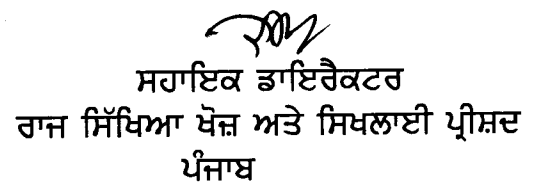 ਸਹਾਇਕ ਡਾਇਰੈਕਟਰ
ਰਾਜ ਸਿੱਖਿਆ ਖੋਜ਼ ਅਤੇ ਸਿਖਲਾਈ ਪ੍ਰੀਸ਼ਦ
ਪੰਜਾਬ